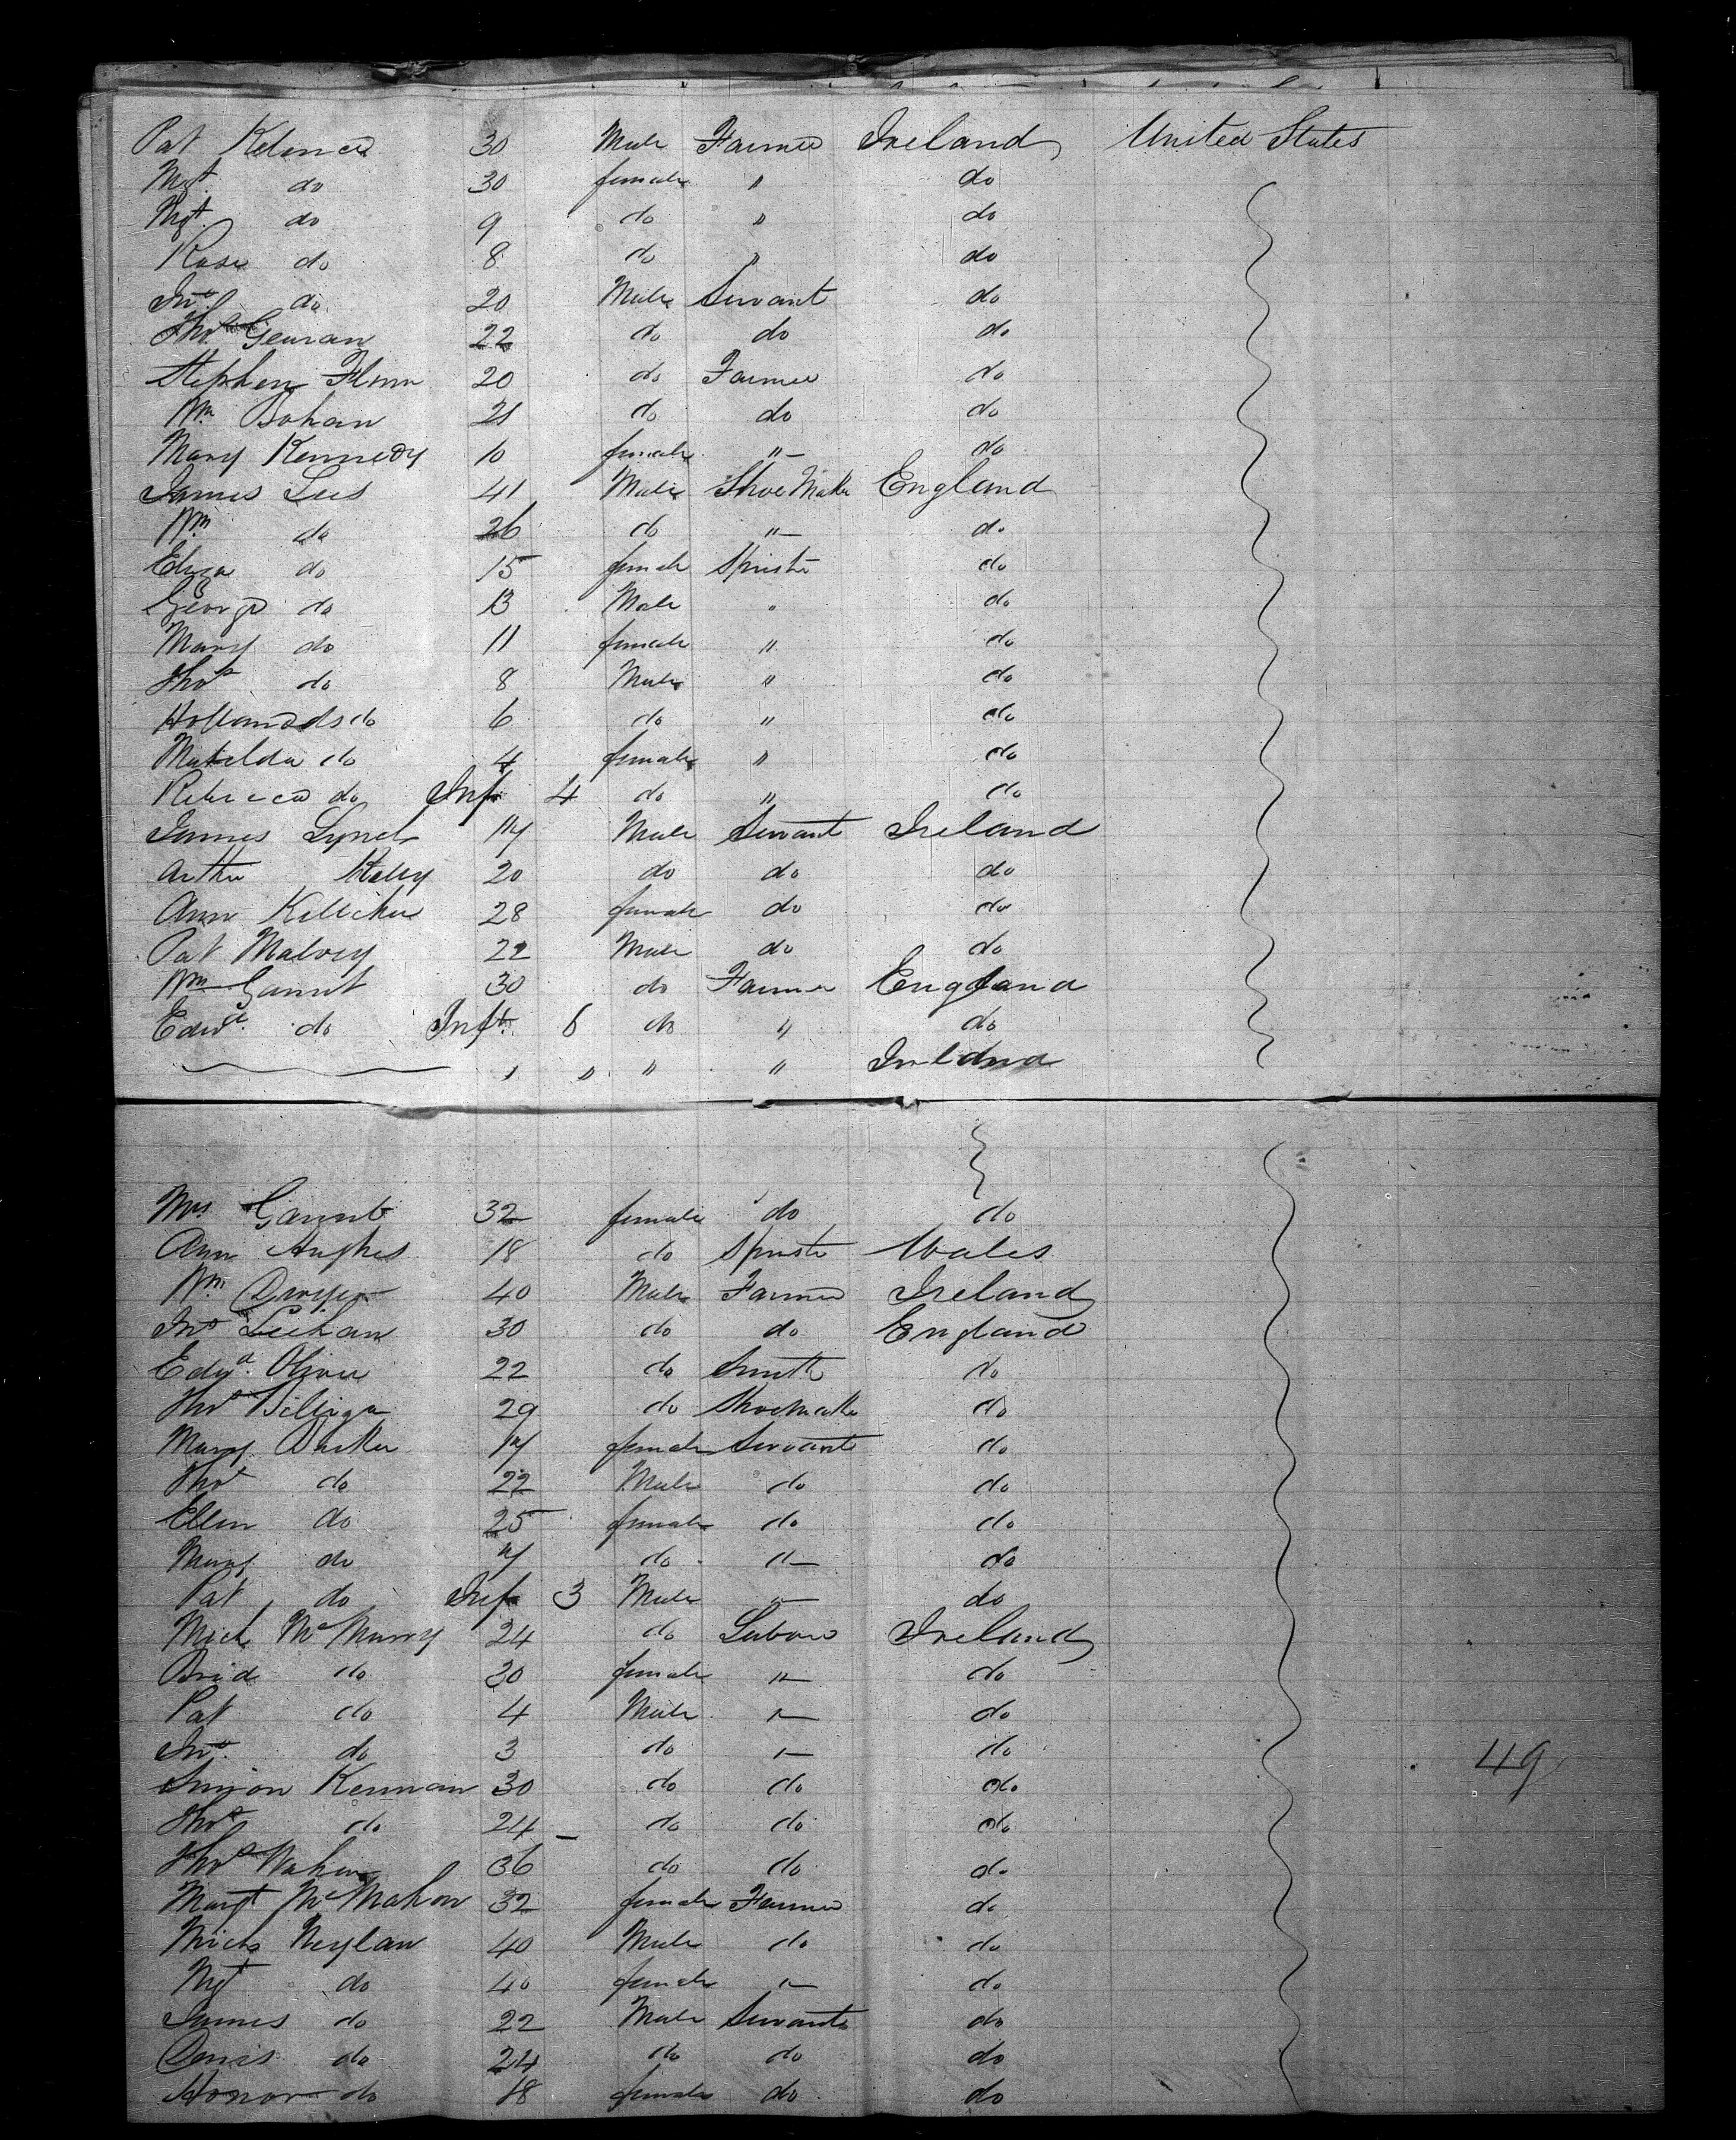 Pat 30 Male Farmer Ireland United States
Mgt. do 30 female " do
Mgt. do 9 do " do
Rose do 8 do " do
Jno. do 20 Male Servant do
Thos Geuran 22 do do do
Stephen Flinn 20 do Farmer do
Wm. Bohan 21 do do do
Mary Kennedy 10 female "— do
James Lees 41 Male Shoe Maker England
Wm. do 26 do "— do
Eliza do 15 female Spinster do
George do 13 Male " do
Mary do 11 female " do
Thos do 8 Male " do
do 6 do " do
Matilda do 4 female " do
Rebecca do Inft 4 do " do
James Lynch 17 Male Servant Ireland
Arthur 20 do do do
Ann 28 female do do
Pat Malvey 22 Male do do
Wm 30 do Farmer England
Edwd. do Inft. 6 do " do
" " " " Ireland
Mrs 32 female do do
Ann Hughes 18 do Spinster Wales
Wm. Dwyer 40 Male Farmer Ireland
Jno Leehan 30 do do England
Edwd. Oliver 22 do Smith do
Thos 29 do Shoemaker do
Mary 17 female Servant do
Thos do 22 Male do do
Ellen do 25 female do do
Mary do 7 do "— do
Pat do Inft 3 Male "— do
Mich 24 do Labour Ireland
Brid do 30 female "— do
Pat do 4 Male "— do
Jno. do 3 do "— do
Simon Kennan 30 do do do
Thos do 24 do do do
Thos 36 do do do
Margt McMahon 32 female Farmer do
Mich Neylan 40 Male do do
Mgt do 40 female "— do
James do 22 Male Servant do
Denis do 24 do do do
Honor do 18 female do do
49